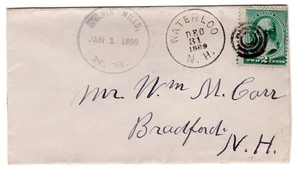 MILLS,
JAN 1 1890
WATERLOO
DEC
31
1889
N. H.
TWO CENTS
Mr Wm M. Carr
Bradford,
N. H.